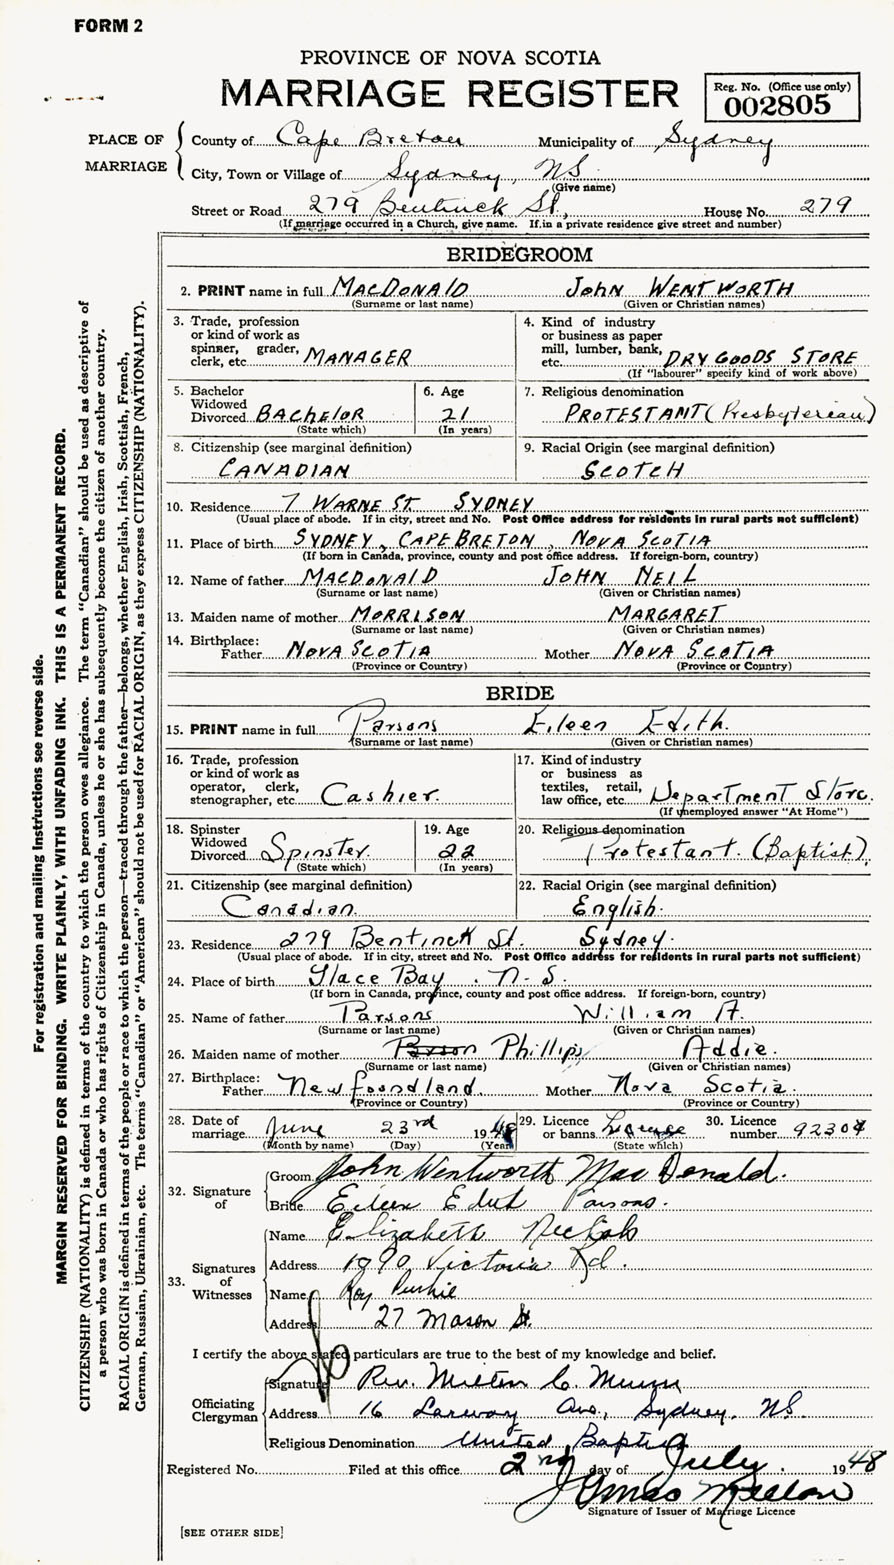 FORM 2
PROVINCE OF NOVA SCOTIA
MARRIAGE REGISTER
Reg. No. (Office use only)
002805
PLACE OF MARRIAGE
County of Cape Breton Municipality of Sydney
City, Town or Village of Sydney, NS.
(Give name)
Street or Road 279 Bentinck St., House No. 279
(If marriage occurred in a Church, give name. If in a private residence give street and number)
BRIDEGROOM
2. PRINT name in full MACDONALD JOHN WENTWORTH
(Surname or last name) (Given or Christian names)
3. Trade, profession or kind of work as spinner, grader, clerk, etc. MANAGER
4. Kind of industry or business as paper mill, lumber, bank, etc. DRY GOODS STORE
(If "labourer" specify kind of work above)
5. Bachelor Widowed Divorced BACHELOR
(State which)
6. Age 21
(In years)
7. Religious denomination PROTESTANT (Presbyterean)
8. Citizenship (see marginal definition) CANADIAN
9. Racial Origin (see marginal definition) SCOTCH
10. Residence 7 WARNE ST. SYDNEY
(Usual place of abode. If in city, street and No. Post Office address for residents in rural parts not sufficient)
11. Place of birth SYDNEY, CAPE BRETON, NOVA SCOTIA
(If born in Canada, province, county and post office address. If foreign-born, country)
12. Name of father MACDONALD JOHN NEIL
(Surname or last name) (Given or Christian names)
13. Maiden name of mother MORRISON MARGARET
(Surname or last name) (Given or Christian names)
14. Birthplace: Father NOVA SCOTIA Mother NOVA SCOTIA
(Province or Country) (Province or Country)
BRIDE
15. PRINT name in full Parsons Eileen Edith.
(Surname or last name) (Given or Christian names)
16. Trade, profession or kind of work as operator, clerk, stenographer, etc. Cashier.
17. Kind of industry or business as textiles, retail, law office, etc. Department Store.
(If unemployed answer "At Home")
18. Spinster Widowed Divorced Spinster.
(State which)
19. Age 22
(In years)
20. Religious denomination Protestant. (Baptist).
21. Citizenship (see marginal definition) Canadian.
22. Racial Origin (see marginal definition) English.
23. Residence 279 Bentinck St. Sydney.
(Usual place of abode. If in city, street and No. Post Office address for residents in rural parts not sufficient)
24. Place of birth Glace Bay. N-S.
(If born in Canada, province, county and post office address. If foreign-born, country)
25. Name of father Parsons William A.
(Surname or last name) (Given or Christian names)
26. Maiden name of mother Phillips Addie.
(Surname or last name) (Given or Christian names)
27. Birthplace: Father Newfoundland. Mother Nova Scotia.
(Province or Country) (Province or Country)
28. Date of marriage June 23rd 1948
(Month by name) (Day) (Year)
29. Licence or banns License
(State which)
30. Licence number 92304
32. Signature of
Groom John Wentworth MacDonald.
Bride Eileen Edith Parsons.
33. Signatures of Witnesses
Name Elizabeth
Address 1990 Victoria Rd.
Name Roy
Address 27 Mason St.
I certify the above stated particulars are true to the best of my knowledge and belief.
Officiating Clergyman
Signature Rev. Milton C. Munn
Address 16 Ave., Sydney, N.S.
Religious Denomination United Baptist
Registered No. Filed at this office 2nd day of July. 1948
James
Signature of Issuer of Marriage Licence
[SEE OTHER SIDE]
For registration and mailing instructions see reverse side.
MARGIN RESERVED FOR BINDING. WRITE PLAINLY, WITH UNFADING INK. THIS IS A PERMANENT RECORD.
CITIZENSHIP (NATIONALITY) is defined in terms of the country to which the person owes allegiance. The term "Canadian" should be used as descriptive of
a person who was born in Canada or who has rights of Citizenship in Canada, unless he or she has subsequently become the citizen of another country.
RACIAL ORIGIN is defined in terms of the people or race to which the person—traced through the father—belongs, whether English, Irish, Scottish, French,
German, Russian, Ukrainian, etc. The terms "Canadian" or "American" should not be used for RACIAL ORIGIN, as they express CITIZENSHIP (NATIONALITY).